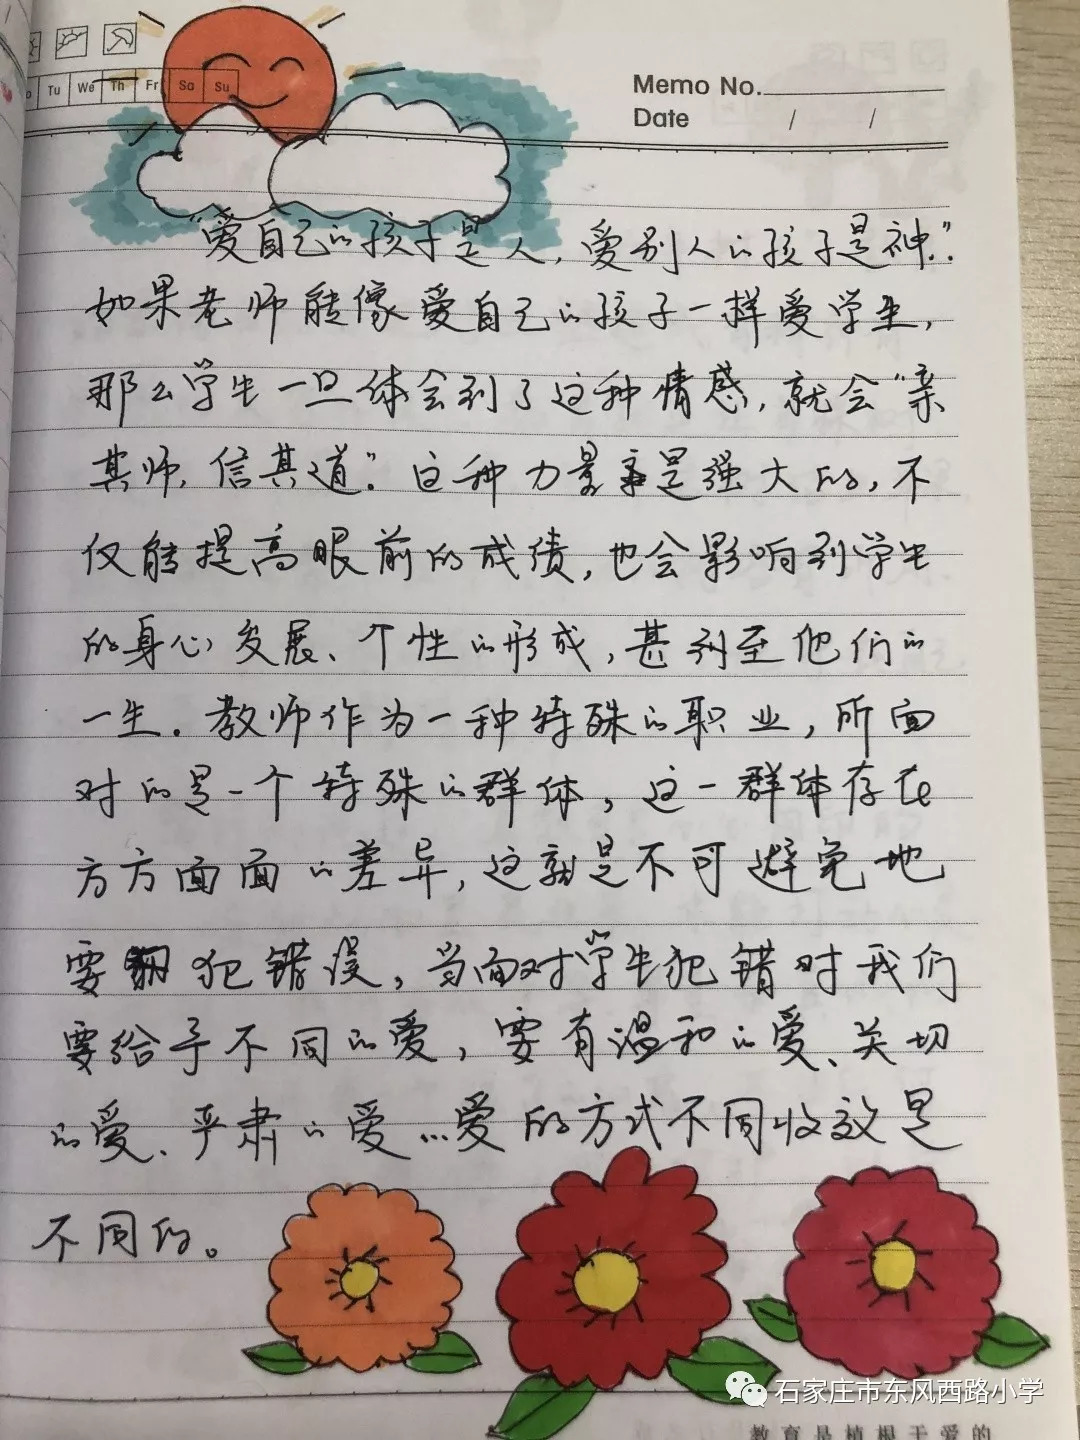 Tu We Th Fr Sa Su
Memo No.
Date / /
“爱自己的孩子是人,爱别人的孩子是神”.
如果老师能像爱自己的孩子一样爱学生,
那么学生一旦体会到了这种情感,就会“亲
其师,信其道”.这种力量是强大的,不
仅能提高眼前的成绩,也会影响到学生
的身心发展、个性的形成,甚到至他们的
一生.教师作为一种特殊的职业,所面
对的是一个特殊的群体,这一群体存在
方方面面的差异,这就是不可避免地
要犯错误,当面对学生犯错时我们
要给予不同的爱,要有温和的爱、关切
的爱、严肃的爱…爱的方式不同收效是
不同的。
石家庄市东风西路小学
教育是植根于爱的